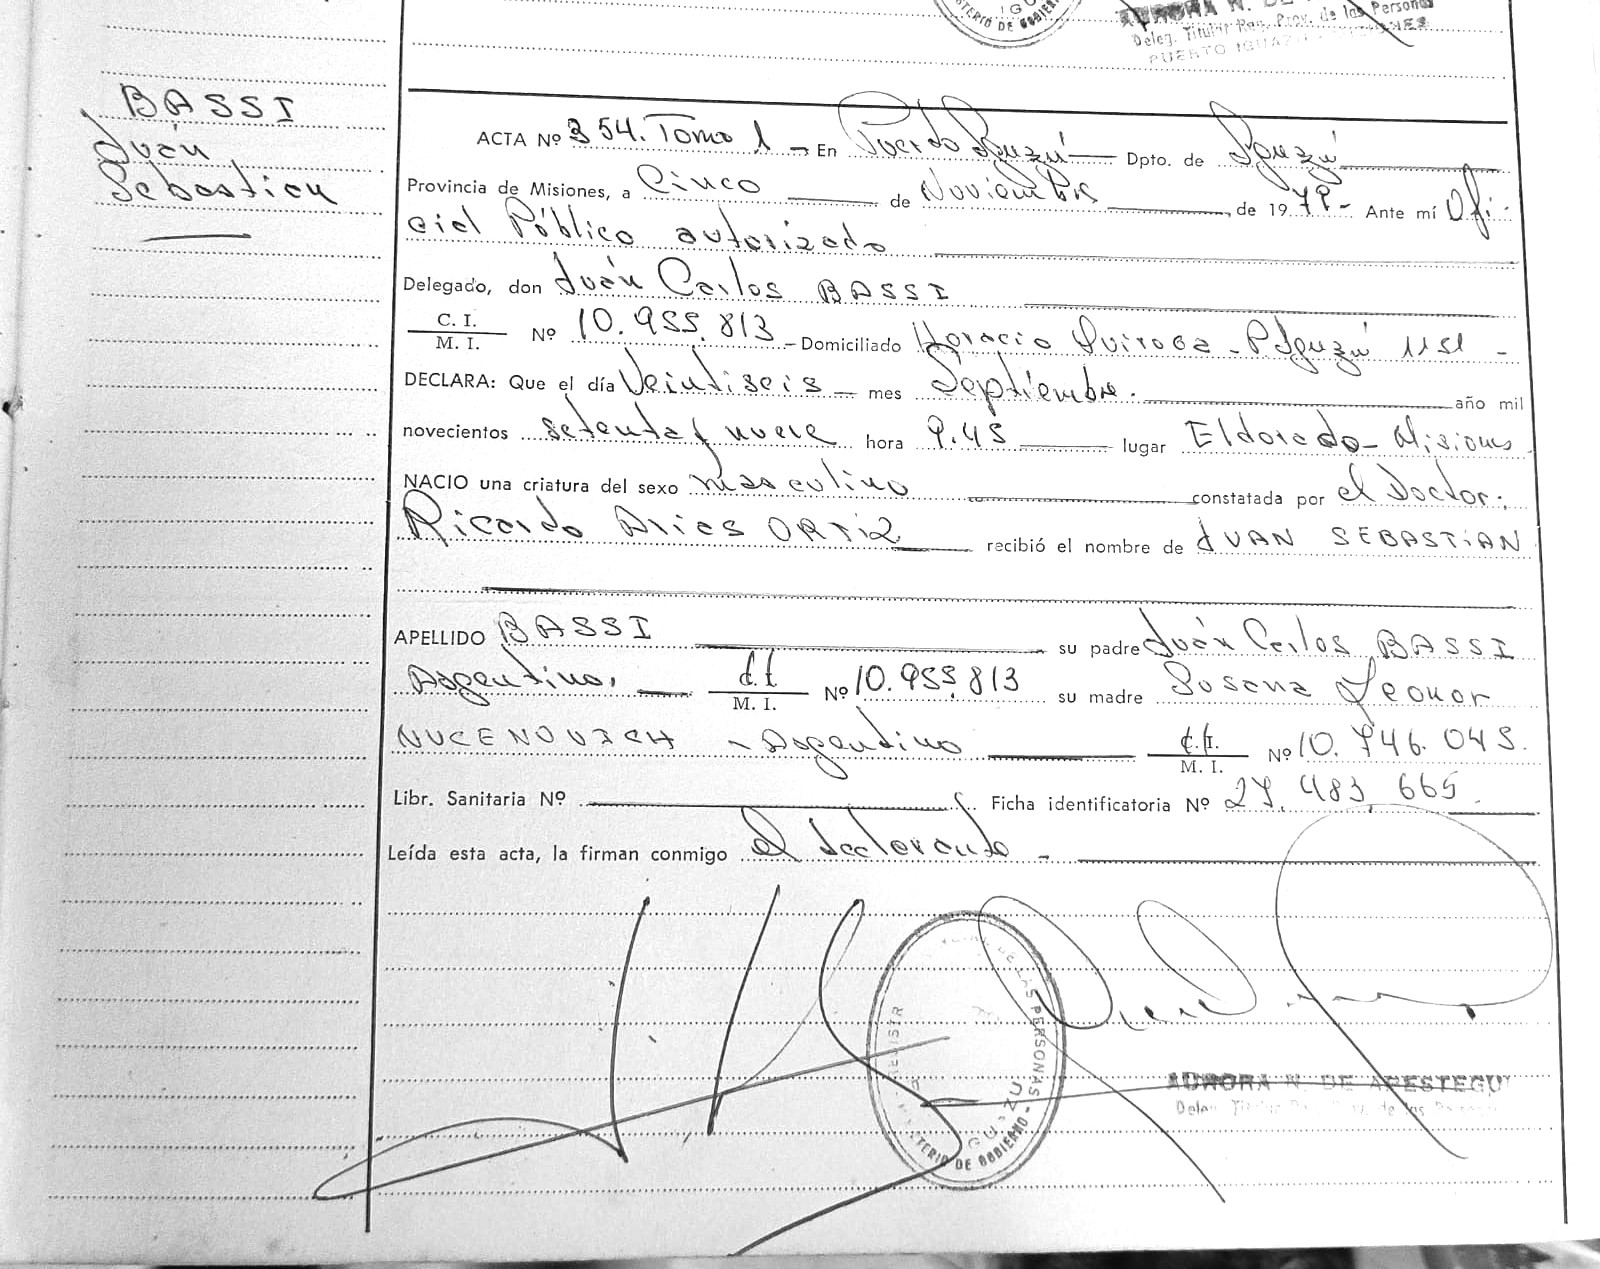 IGU
MINISTERIO DE GOBIERNO
AURORA N. DE
Deleg. Titular Reg. Prov. de las Personas
PUERTO IGUAZU MISIONES
BASSI
Juán
Sebastian
ACTA Nº 354. Tomo 1 - En Puerto Iguazú Dpto. de Iguazú
Provincia de Misiones, a Cinco de Noviembre de 1979- Ante mí Ofi-
cial Público autorizado
Delegado, don Juán Carlos BASSI
C. I. / M. I. Nº 10.955.813 - Domiciliado Horacio Quiroga - P. Iguazú
DECLARA: Que el día Veintiseis - mes Septiembre. año mil
novecientos setenta y nueve hora 9.45 lugar Eldorado - Misiones
NACIO una criatura del sexo masculino constatada por el Doctor:
Ricardo Aries ORTIZ recibió el nombre de JUAN SEBASTIAN
APELLIDO BASSI su padre Juán Carlos BASSI
Argentino. C.I. / M. I. Nº 10.955.813 su madre Susana Leonor
NUCENOVICH - Argentino C.I. / M. I. Nº 10.746.045.
Libr. Sanitaria Nº Ficha identificatoria Nº 27.483.665.
Leída esta acta, la firman conmigo el declarante -
DE LAS PERSONAS
IGUAZU
MINISTERIO DE GOBIERNO
AURORA N. DE APESTEGUI
Deleg. Titular Reg. Prov. de las Personas